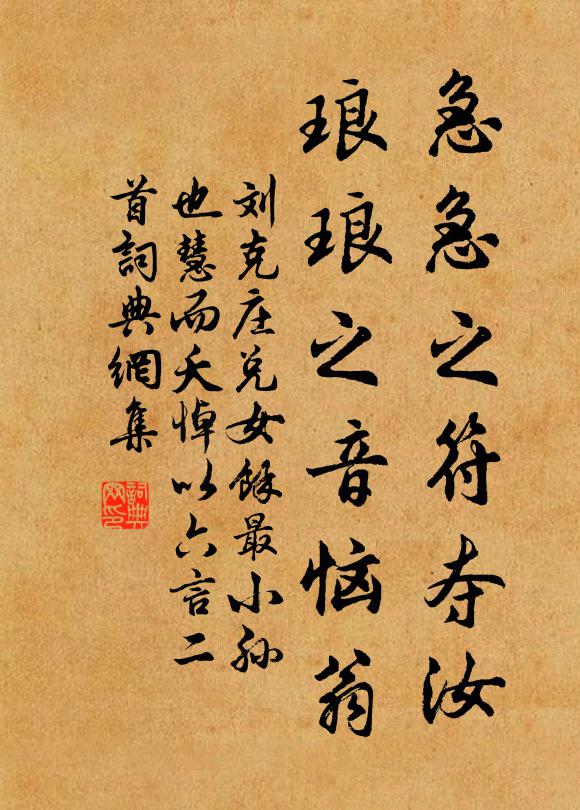 急急之符夺汝
琅琅之音恼翁
刘克庄兑女馀最小孙
也慧而夭悼以六言二
首詞典網集
詞典網印